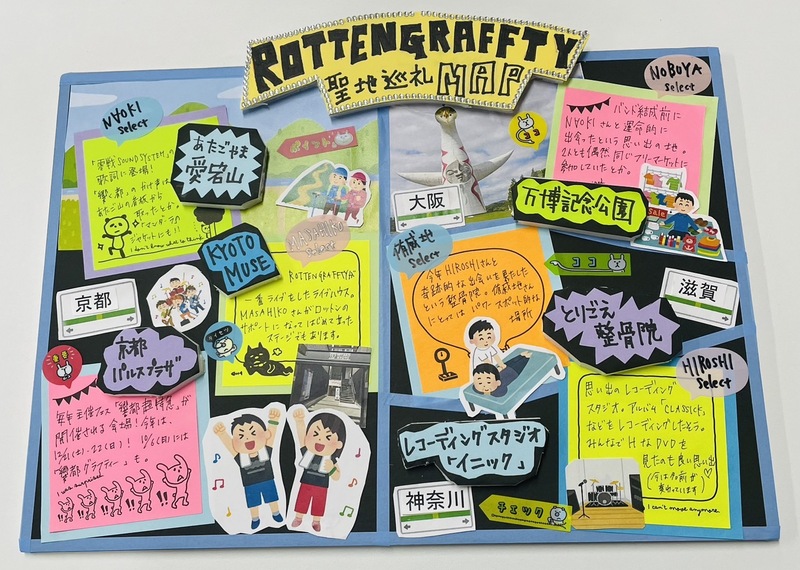 ROTTENGRAFFTY
聖地巡礼 MAP
NAOKI
select
「零戦SOUNDSYSTEM」の
歌詞に登場!
「響く都」のかけ声は
あたご山の看板から
取ったとか。
「マンダーラ」の
ジャケットにも!!
I don't know what to think
あたごやま
愛宕山
ポイント
MASAHIKO
select
KYOTO
MUSE
ROTTENGRAFFTYが
一番ライブをしたライブハウス。
MASAHIKOさんがロットンの
サポートになってはじめて立った
ステージでもあります。
京都
京都
パルスプラザ
毎年主催フェス「響都超特急」が
開催される会場!今年は、
12/21(土)・22(日)!
「響都グラフティー」も。
NOBUYA
select
バンド結成前に
NAOKIさんと運命的に
出会ったという思い出の地。
2人とも偶然同じフリーマーケットに
参加していたとか。
Sale
大阪
万博記念公園
侑威地
select
今年HIROSHIさんと
奇跡的な出会いを果たした
という整骨院。侑威地さん
にとってはパワースポット的な
場所
ココ
滋賀
とりごえ
整骨院
HIROSHI
select
思い出のレコーディング
スタジオ。アルバム「CLASSICK」
などをレコーディングしたそう。
みんなでHなDVDを
見たのも良い思い出
(今は名前が
変わっています)
I can't move anymore
レコーディングスタジオ
「イニック」
神奈川
チェック